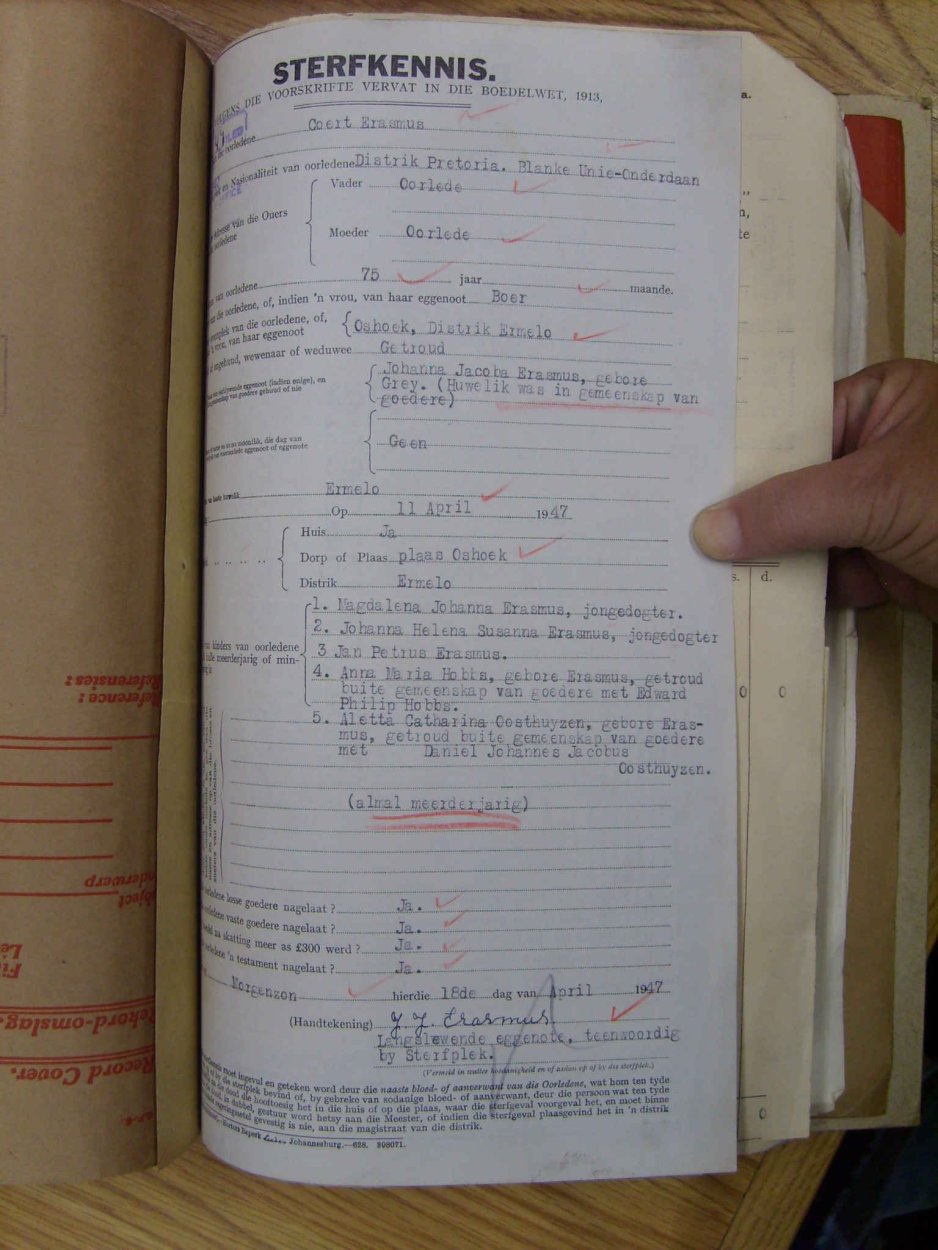 STERFKENNIS.
DIE VOORSKRIFTE VERVAT IN DIE BOEDELWET, 1913,
oorledene Coert Erasmus
en Nasionaliteit van oorledene Distrik Pretoria. Blanke Unie-Onderdaan
Vader Oorlede
van die Ouers
oorledene
Moeder Oorlede
van oorledene 75 jaar maande.
van die oorledene, of, indien 'n vrou, van haar eggenoot Boer
van die oorledene, of, Oshoek, Distrik Ermelo
van haar eggenoot
ongehuud, wewenaar of weduwee Getroud
eggenoot (indien enige), en Johanna Jacoba Erasmus, gebore
van goedere gehoud of nie Grey. (Huwelik was in gemeenskap van
goedere)
die dag van
eggenoot of eggenote Geen
Ermelo
Op 11 April 1947
Huis Ja
Dorp of Plaas plaas Oshoek
Distrik Ermelo
1. Magdalena Johanna Erasmus, jongedogter.
2. Johanna Helena Susanna Erasmus, jongedogter
van kinders van oorledene 3 Jan Petrus Erasmus.
meerderjarig of min- 4. Anna Maria Hobbs, gebore Erasmus, getroud
buite gemeenskap van goedere met Edward
Philip Hobbs.
5. Aletta Catharina Oosthuyzen, gebore Eras-
mus, getroud buite gemeenskap van goedere
met Daniel Johannes Jacobus
Oosthuyzen.
(almal meerderjarig)
losse goedere nagelaat ? Ja.
vaste goedere nagelaat ? Ja.
skatting meer as £300 werd ? Ja.
'n testament nagelaat ? Ja.
Morgenzon hierdie 18de dag van April 1947
(Handtekening) J. J. Erasmus
Langslewende eggenote, teenwoordig
by Sterfplek.
(Vermeld in watter hoedanigheid en of aldan op of by die sterfplek.)
moet ingevul en geteken word deur die naaste bloed- of aanverwant van die Oorledene, wat hom ten tyde
die sterfplek bevind of, by gebreke van sodanige bloed- of aanverwant, deur die persoon wat ten tyde
die hooftoesig het in die huis of op die plaas, waar die sterfgeval voorgeval het, en moet binne
in dubbel, gestuur word hetsy aan die Meester, of indien die sterfgeval plaasgevind het in 'n distrik
gevestig is nie, aan die magistraat van die distrik.
Beperk Johannesburg.—628. 898071.
a.
s. d.
0 0
0
Reference :
Referensies :
Onderwerp
Rekord-omslag.
Record Cover.